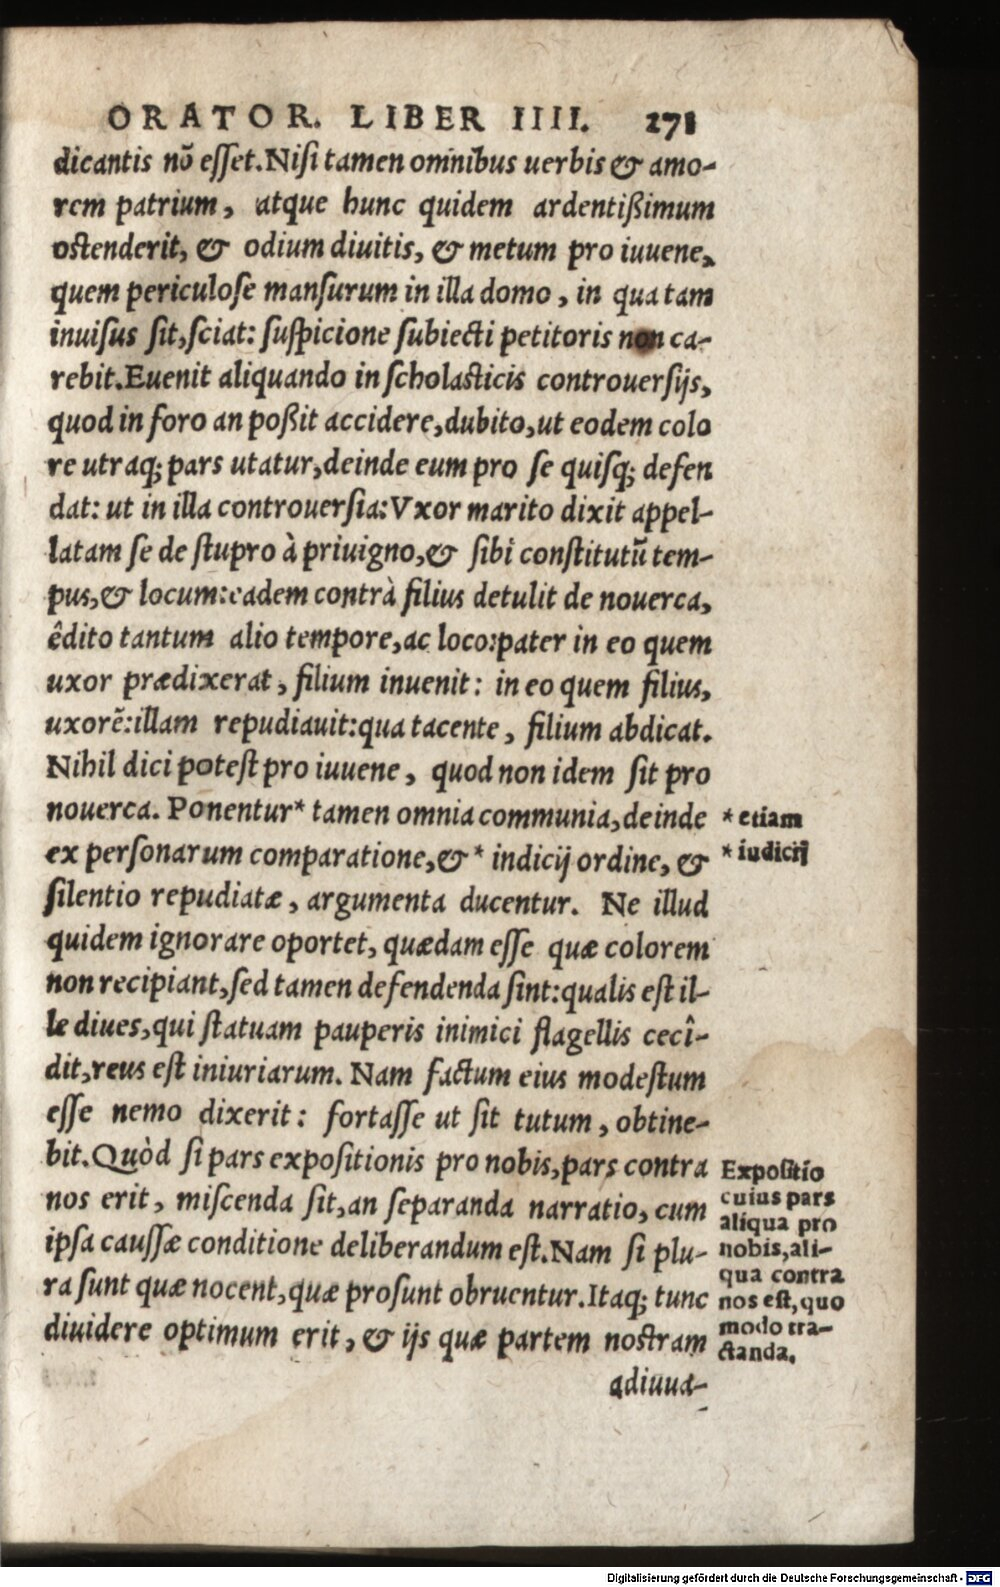 ORATOR. LIBER IIII. 271
dicantis nõ eſſet. Niſi tamen omnibus uerbis & amo-
rem patrium, atque hunc quidem ardentißimum
oſtenderit, & odium diuitis, & metum pro iuuene,
quem periculoſe manſurum in illa domo, in qua tam
inuiſus ſit, ſciat: ſuſpicione ſubiecti petitoris non ca-
rebit. Euenit aliquando in ſcholaſticis controuerſijs,
quod in foro an poßit accidere, dubito, ut eodem colo
re utraq; pars utatur, deinde eum pro ſe quiſq; defen
dat: ut in illa controuerſia: Vxor marito dixit appel-
latam ſe de ſtupro à priuigno, & ſibi conſtitutũ tem-
pus, & locum: eadem contrà filius detulit de nouerca,
êdito tantum alio tempore, ac loco: pater in eo quem
uxor prædixerat, filium inuenit: in eo quem filius,
uxorẽ: illam repudiauit: qua tacente, filium abdicat.
Nihil dici poteſt pro iuuene, quod non idem ſit pro
nouerca. Ponentur* tamen omnia communia, deinde
ex perſonarum comparatione, & * indicij ordine, &
ſilentio repudiatæ, argumenta ducentur. Ne illud
quidem ignorare oportet, quædam eſſe quæ colorem
non recipiant, ſed tamen defendenda ſint: qualis eſt il-
le diues, qui ſtatuam pauperis inimici flagellis cecî-
dit, reus eſt iniuriarum. Nam factum eius modeſtum
eſſe nemo dixerit: fortaſſe ut ſit tutum, obtine-
bit. Quòd ſi pars expoſitionis pro nobis, pars contra
nos erit, miſcenda ſit, an ſeparanda narratio, cum
ipſa cauſſæ conditione deliberandum eſt. Nam ſi plu-
ra ſunt quæ nocent, quæ proſunt obruentur. Itaq; tunc
diuidere optimum erit, & ijs quæ partem noſtram
adiuua-
* etiam
* iudicij
Expoſitio
cuius pars
aliqua pro
nobis, ali-
qua contra
nos eſt, quo
modo tra-
ctanda.
Digitalisierung gefördert durch die Deutsche Forschungsgemeinschaft - DFG